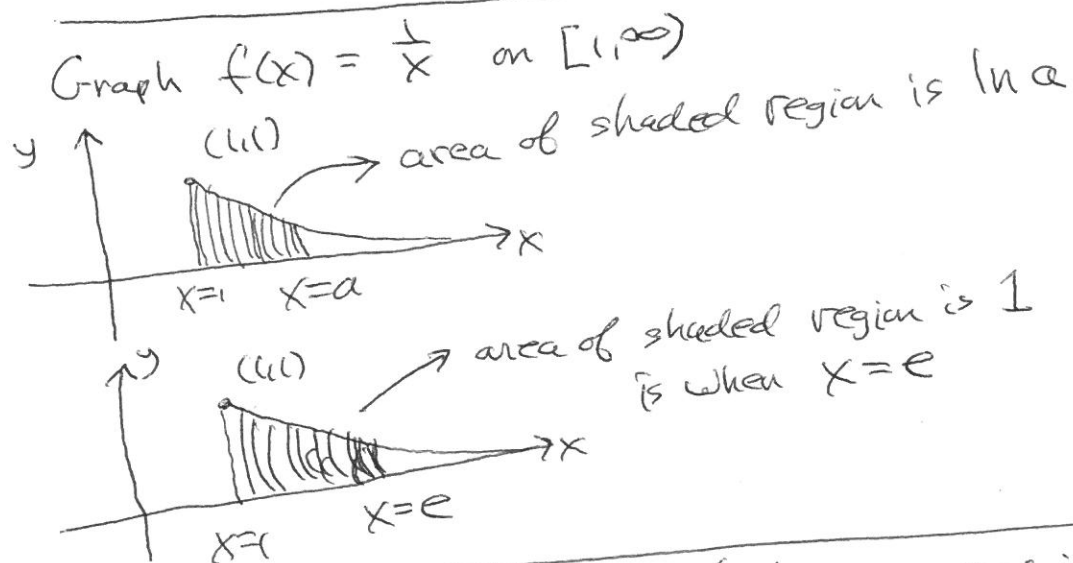 Graph f(x) = 1/x on [1,∞)
y
(1,1)
area of shaded region is ln a
x
x=1
x=a
y
(1,1)
area of shaded region is 1
is when x=e
x
x=e
x=1